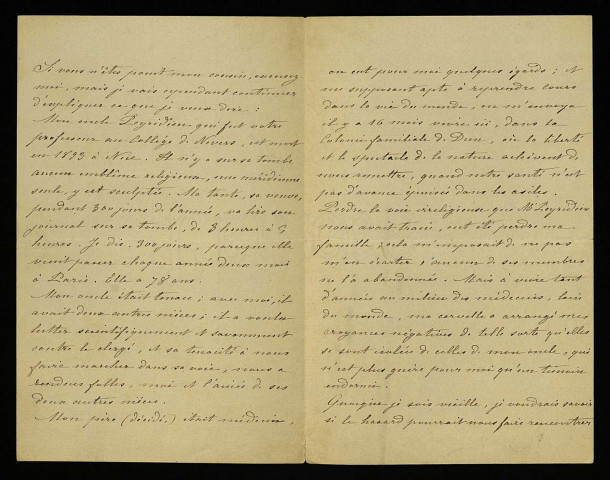 Si vous n'êtes point mon cousin, excusez
moi, mais je vais cependant continuer
d'expliquer ce que je veux dire :
Mon oncle Peyridieu qui fut votre
professeur au Collège de Nevers, est mort
en 1893 à Nice. Il n'y a sur sa tombe
aucun emblème religieux, une méridienne
seule, y est sculptée. Ma tante, sa veuve,
pendant 300 jours de l'année, va lire son
journal sur sa tombe, de 3 heures à 5
heures. Je dis, 300 jours, parceque elle
vient passer chaque année deux mois
à Paris. Elle a 78 ans.
Mon oncle était tenace ; avec moi, il
avait deux autres nièces ; il a voulu
lutter scientifiquement et savamment
contre le clergé, et sa tenacité à nous
faire marcher dans sa voie, nous a
rendues folles, moi et l'ainée de ses
deux autres nièces.
Mon père (décédé,) était médecin,
on eut pour moi quelques égards ; et
me supposant apte à reprendre cours
dans la vie du monde, on m'envoya
il y a 16 mois vivre ici, dans la
Colonie familiale de Dun, où la liberté
et le spectacle de la nature achèvent de
nous remettre, quand notre santé n'est
pas d'avance épuisée dans les asiles.
Perdre la voie irréligieuse que Mr Peyridieu
nous avait tracée, eut été perdre ma
famille, cela m'imposait de ne pas
m'en écarter si aucun de ses membres
ne l'a abandonnée. Mais à vivre tant
d'années au milieu des médecins, loin
du monde, ma cervelle a arrangé mes
croyances négatives de telle sorte qu'elles
se sont isolées de celles de mon oncle, qui
n'est plus guère pour moi qu'un
endormi.
Quoique je sois vieille, je voudrais savoir
si le hasard pourrait nous faire rencontrer